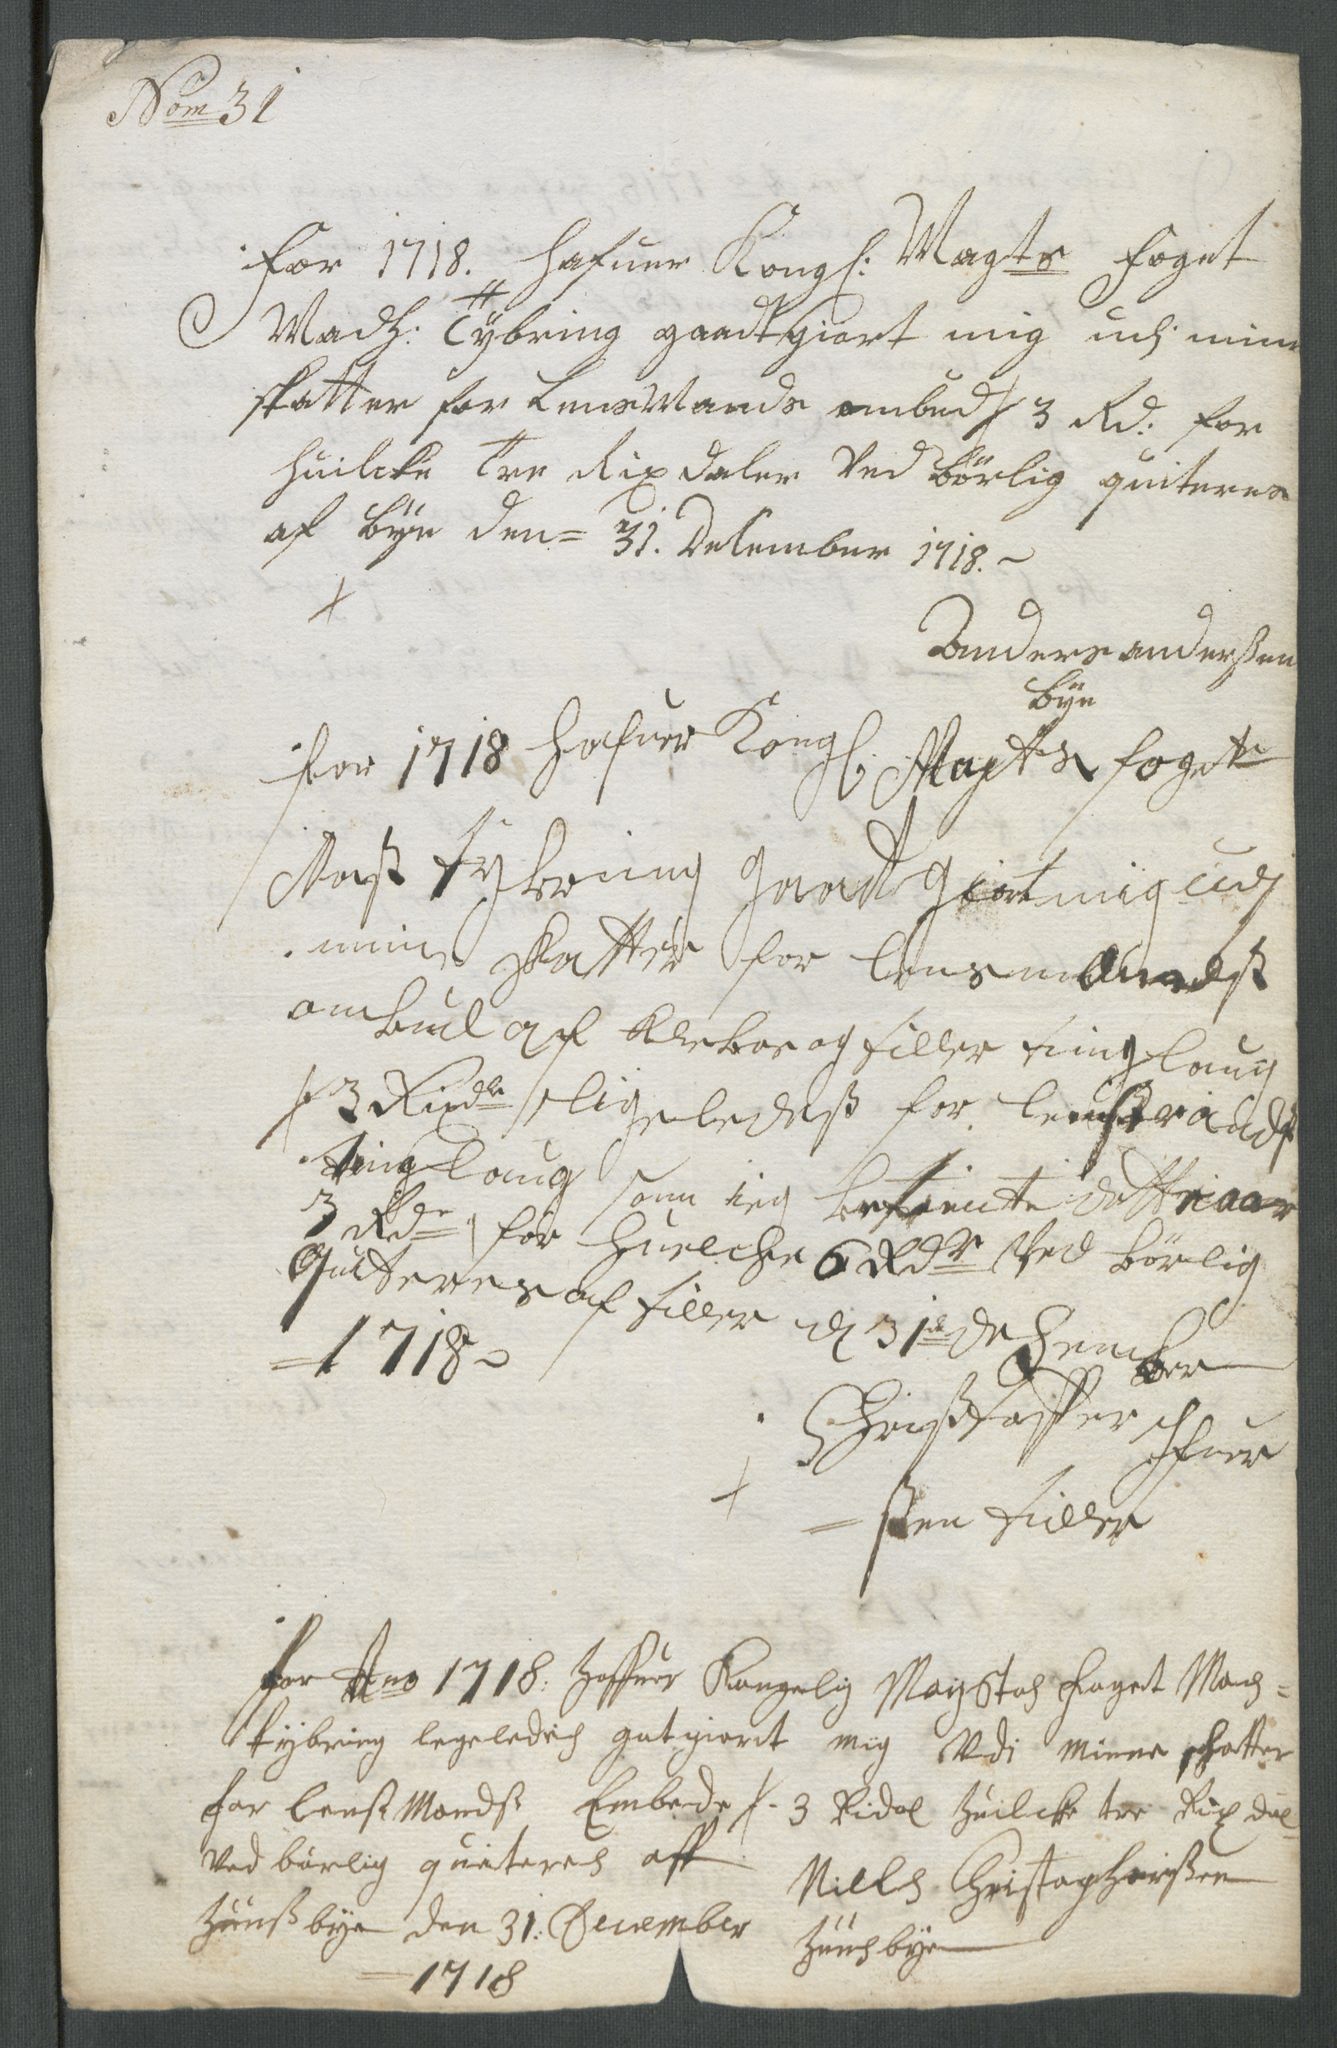 Nom 31
For 1718. hafuer Kongl: Magts foget
Madz: Tÿbring gaadtgiort mig udj mine
skatter for LensMands ombud / 3 Rd: for
huilcke Tre Rixdaler Ved börlig quiteres
af Bÿe den = 31. Desember 1718.
Anders anderßen
Bÿe
For 1718 hafuer Kongl. Maÿts fogete
Maß tÿbring gaadt giort mig udj
mine skatter for lensmandß
ombud af Klebos og tiller tinglaug
/ 3 Rixdr ligeledeß for leinstrands
tinglaug som ieg betiente dette aar
3 Rdr / for huelche 6 Rdr Ved börlig
Quiteres af tiller d 31de deßember
= 1718
Christoffer Ifuer
= ßen tiller
For Ano 1718: haffuer Kongelig Maÿstets foget Mads
tÿbring legeledes gatgiort mig Vdi minne schatter
for lenß Mandß Embede /. 3 Ridal huilcke tre Rix dal
Ved börlig quiteres aff
Hunßbÿe den 31: December
1718
Niells Christopherßen
Hunsbÿe